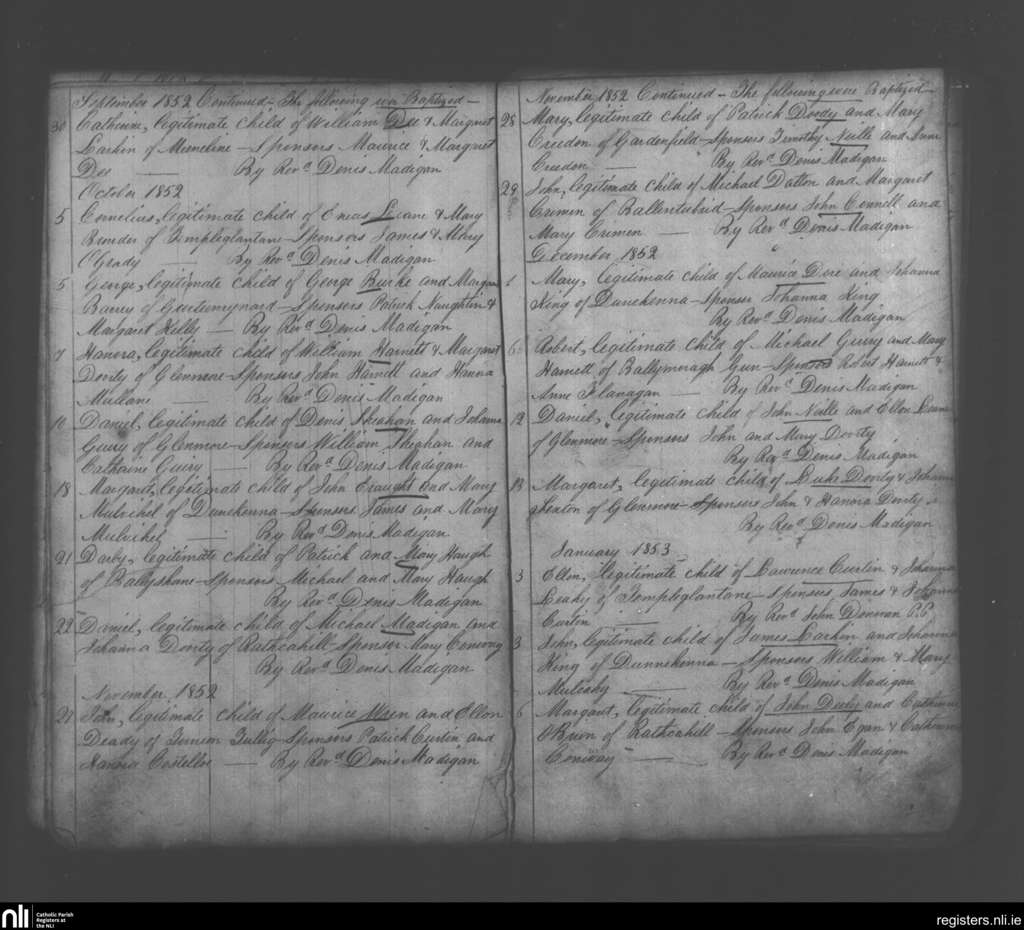 September 1852 Continued – The following were Baptized –
30 Catherine, legitimate child of William Dee & Margaret
Larkin of – Sponsors Maurice & Margaret
Dee — By Revd Denis Madigan
October 1852
5 Cornelius, legitimate child of Leane & Mary
of Templeglantane – Sponsors James & Mary
O'Grady — By Revd Denis Madigan
5 George, legitimate child of George Burke and
Barry of – Sponsors Patrick Naughtin &
Margaret Kelly — By Revd Denis Madigan
7 Hanora, legitimate child of William Harnett & Margaret
Dority of Glenmore – Sponsors John Harnett and Hanora
Mullane — By Revd Denis Madigan
10 Daniel, legitimate child of Denis Sheahan and Johanna
Geary of Glenmore – Sponsors William and
Catharine Geary — By Revd Denis Madigan
18 Margaret, legitimate child of John and Mary
of Dunekenna – Sponsors James and Mary
— By Revd Denis Madigan
21 Darby, legitimate child of Patrick and Mary Haugh
of – Sponsors Michael and Mary Haugh
By Revd Denis Madigan
22 Daniel, legitimate child of Michael Madigan and
Johanna Dority of Rathcahill – Sponsor Mary
By Revd Denis Madigan
November, 1852
21 John, legitimate child of Maurice and Ellen
Deady of – Sponsors Patrick Curtin and
Hanora Costelloe — By Revd Denis Madigan
November, 1852 Continued – The following were Baptized –
28 Mary, legitimate child of Patrick Doody and Mary
Creedon of Gardenfield – Sponsors Timothy Neille and
Creedon — By Revd Denis Madigan
29 John, legitimate child of Michael Dalton and Margaret
of – Sponsors John Connell and
Mary — By Revd Denis Madigan
December, 1852
1 Mary, legitimate child of Maurice and Johanna
King of Dunekenna – Sponsor Johanna King
By Revd Denis Madigan
6 Robert, legitimate child of Michael and Mary
Harnett of – Sponsors Robert Harnett &
Anne Flanagan — By Revd Denis Madigan
12 Daniel, legitimate child of John Neille and Ellen
of Glenmore – Sponsors John and Mary Dority
By Revd Denis Madigan
13 Margaret, legitimate child of Luke Dority & Johanna
of Glenmore – Sponsors John & Hanora Dority
By Revd Denis Madigan
January 1853
3 Ellen, legitimate child of Lawrence Curtin & Johanna
Leahy of Templeglantane – Sponsors James & Johanna
Curtin — By Revd John P.P.
3 John, legitimate child of James Larkin and Johanna
King of Dunnekenna – Sponsors William & Mary
Mulcahy — By Revd Denis Madigan
6 Margaret, legitimate child of John and Catherine
of Rathcahill – Sponsors John Egan & Catharine
Conway — By Revd Denis Madigan
nli
Catholic Parish
Registers at
the NLI
registers.nli.ie